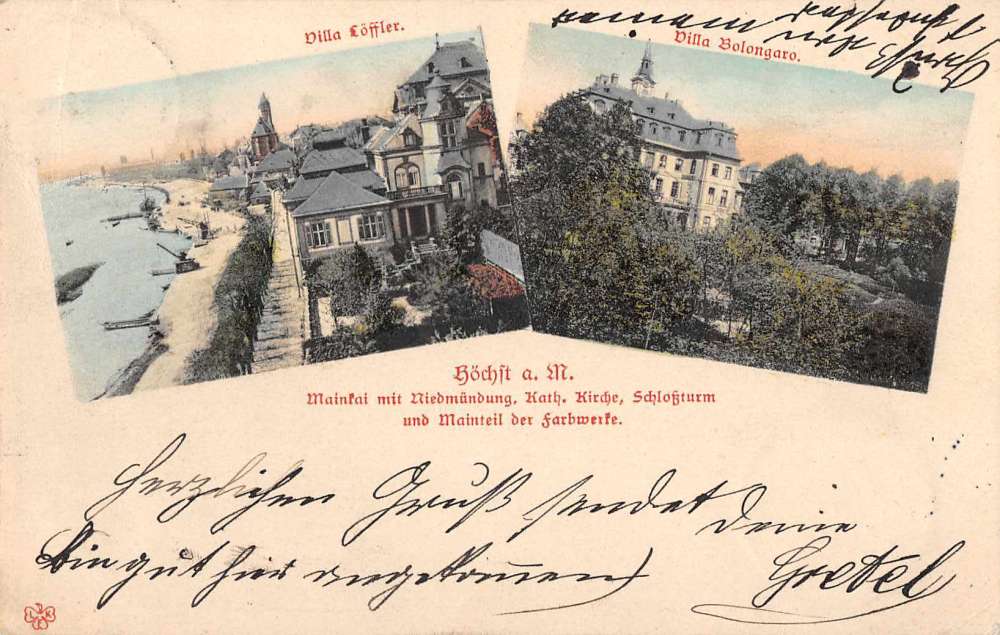 Villa Löffler.
Villa Bolongaro.
Höchst a. M.
Mainkai mit Niedmündung, Kath. Kirche, Schloßturm
und Mainteil der Farbwerke.
Herzlichen Gruß sendet Deine
Gretel
Bin gut hier angekommen)